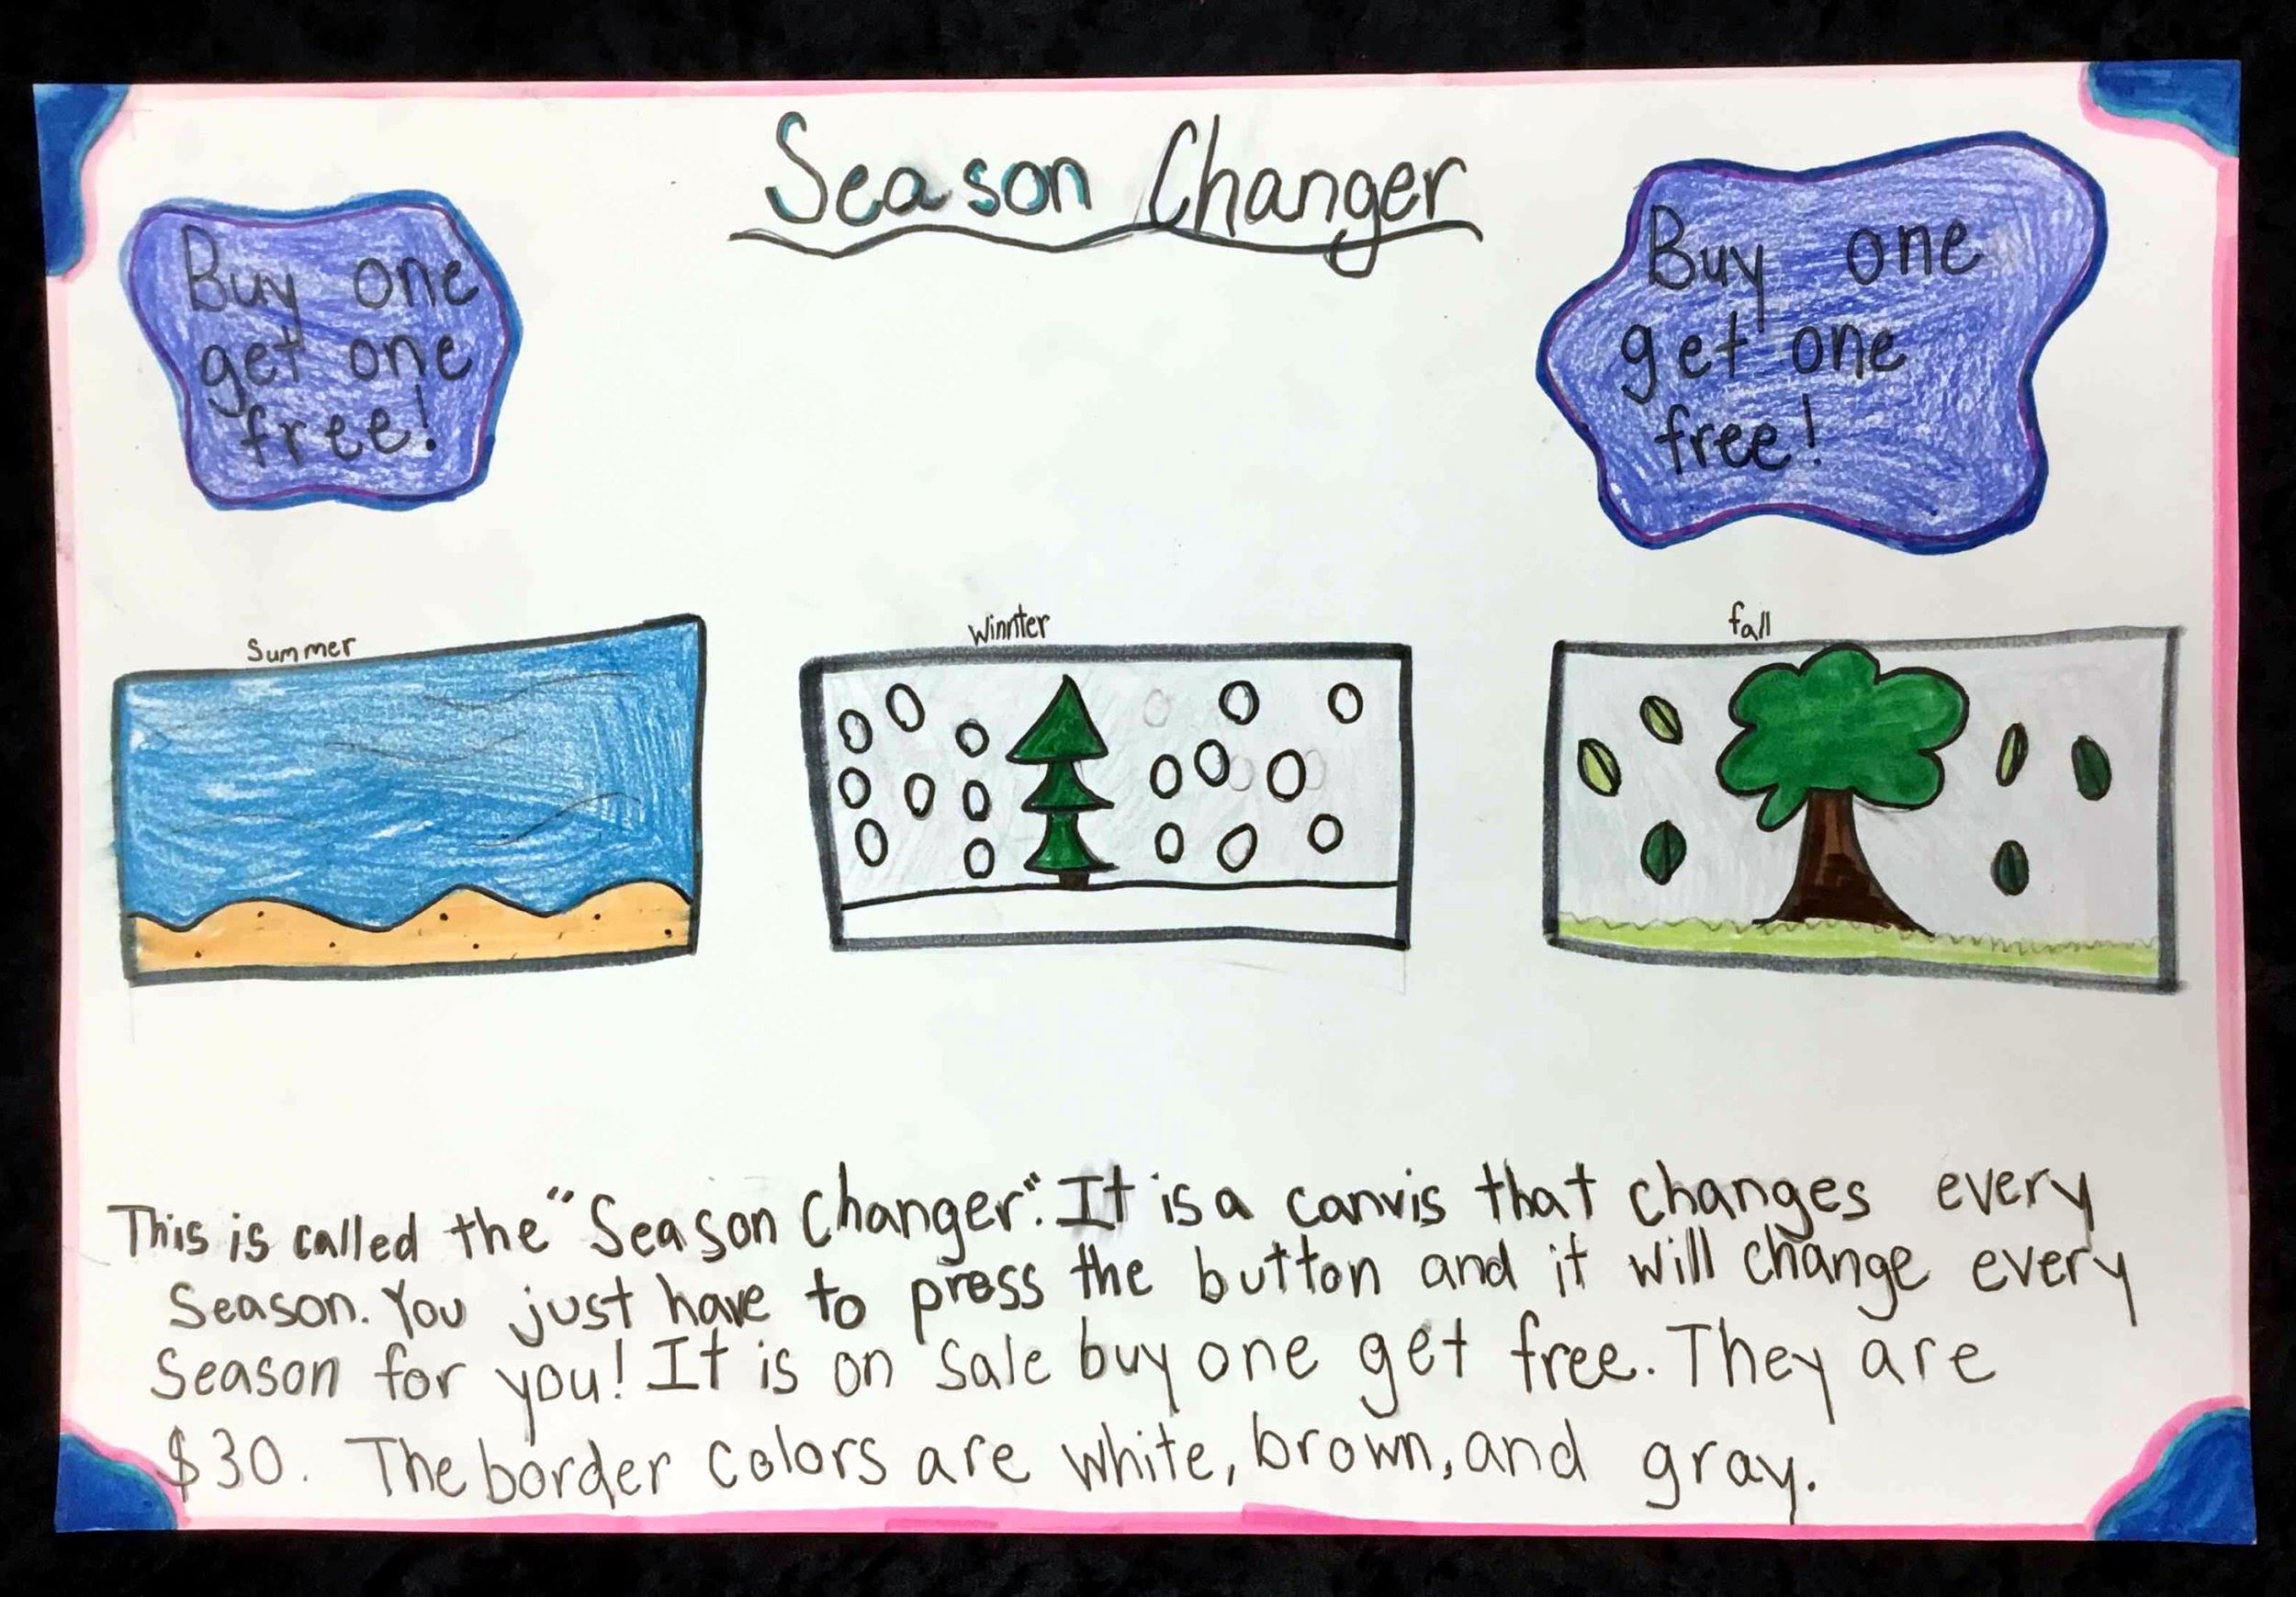 Season Changer
Buy one
get one
free!
Buy one
get one
free!
Summer
Winnter
fall
This is called the "Season Changer". It is a canvis that changes every
Season. You just have to press the button and it will change every
Season for you! It is on sale buy one get free. They are
$30. The border colors are white, brown, and gray.